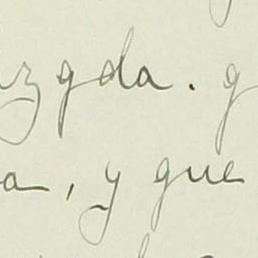 zgda. g
a, y que